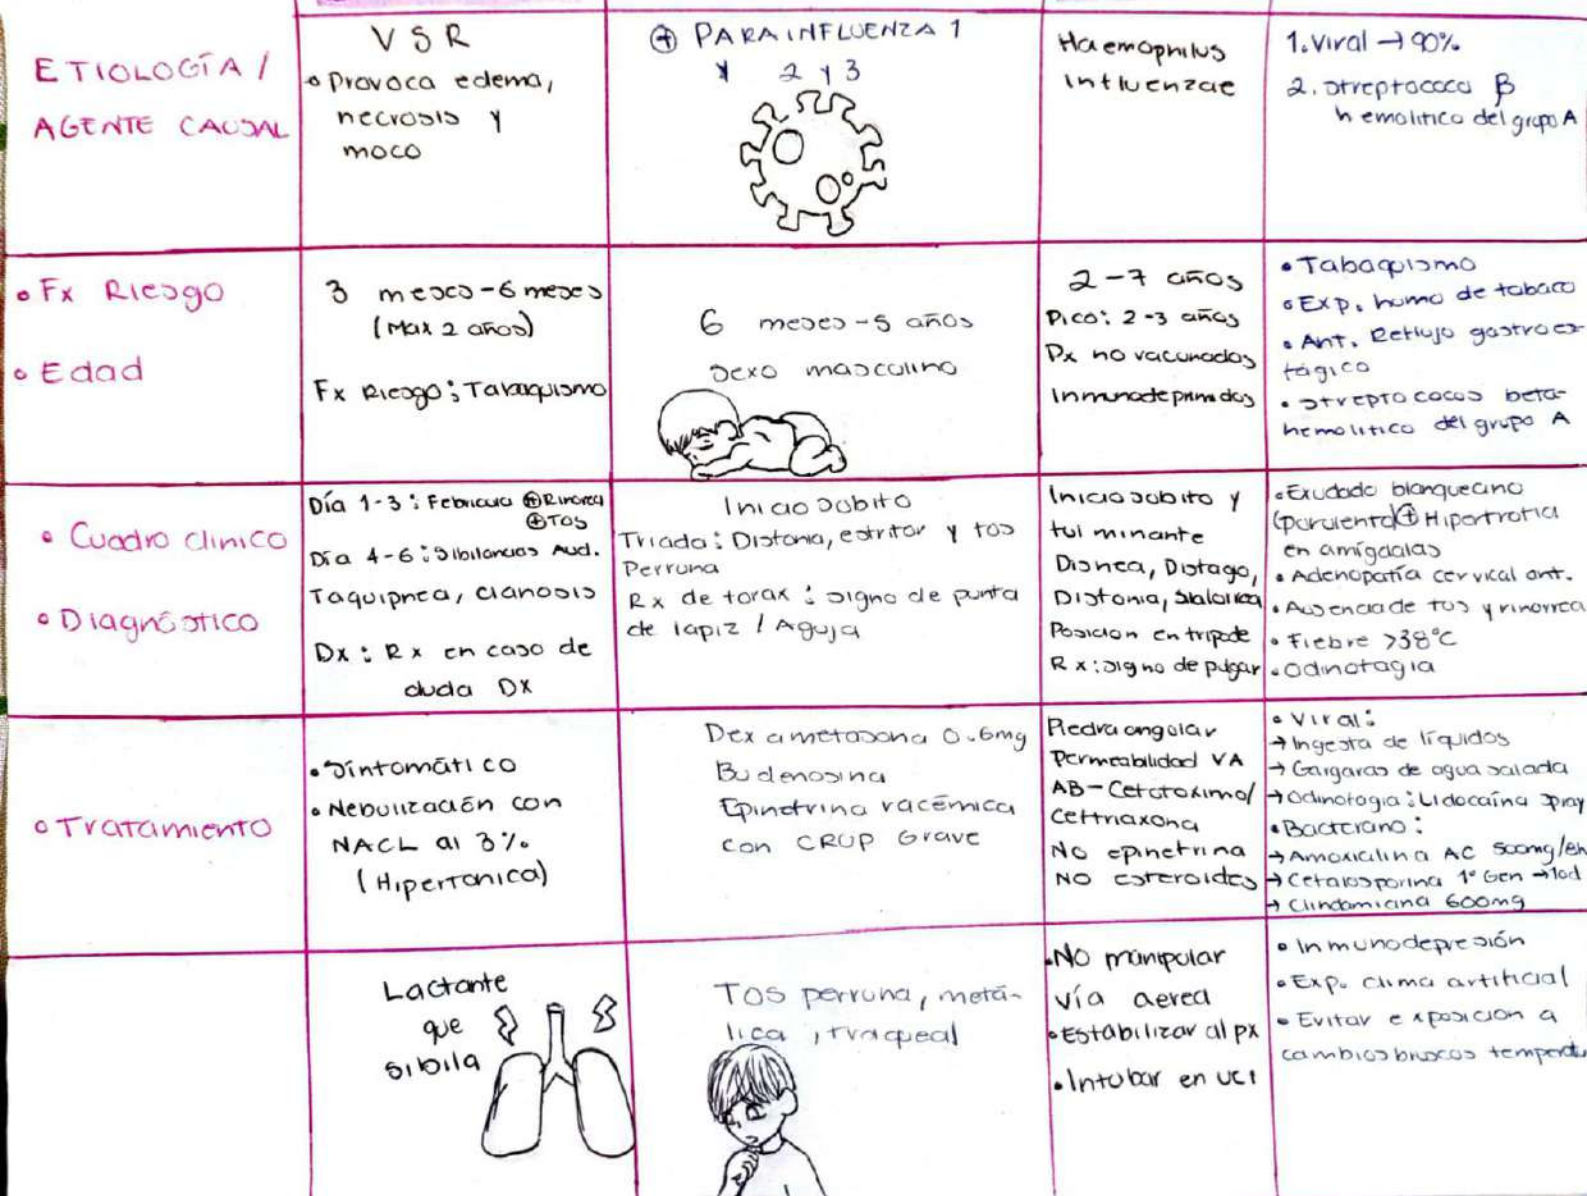 ETIOLOGÍA /
AGENTE CAUSAL
VSR
• Provoca edema,
necrosis y
moco
⊕ PARAINFLUENZA 1
y 2 y 3
Haemophilus
Influenzae
1. Viral → 90%
2. Streptococo β
hemolitico del grupo A
• Fx Riesgo
• Edad
3 meses - 6 meses
(Max 2 años)
Fx Riesgo: Tabaquismo
6 meses - 5 años
Sexo masculino
2 - 7 años
Pico: 2-3 años
Px no vacunados
Inmunodeprimidos
• Tabaquismo
• Exp. humo de tabaco
• Ant. Reflujo gastroes-
fágico
• Streptococos beta-
hemolítico del grupo A
• Cuadro clinico
• Diagnóstico
Día 1-3: Febricula ⊕ Rinorrea
⊕ Tos
Día 4-6: Sibilancias Aud.
Taquipnea, cianosis
Dx: Rx en caso de
duda Dx
Inicio subito
Triada: Disfonia, estritor y tos
Perruna
Rx de torax: signo de punta
de lapiz / Aguja
Inicio subito y
fulminante
Disnea, Disfago,
Disfonia, Sialorrea
Posicion en tripode
Rx: signo de pulgar
• Exudado blanquecino
(purulento) ⊕ Hipertrofia
en amígdalas
• Adenopatía cervical ant.
• Ausencia de tos y rinorrea
• Fiebre >38°C
• Odinofagia
• Tratamiento
• Sintomático
• Nebulización con
NACL al 3%
(Hipertonica)
Dexametasona 0.6mg
Budenosina
Epinefrina racémica
con CRUP Grave
Piedra angular
Permeabilidad VA
AB - Cefotaximo/
Ceftriaxona
No epinefrina
NO esteroides
• Viral:
→ Ingesta de líquidos
→ Gargaras de agua salada
→ Odinofagia: Lidocaína spray
• Bacteriano:
→ Amoxicilina AC 500mg/8h
→ Cefalosporina 1° Gen → 10d
→ Clindamicina 600mg
Lactante
que
sibila
Tos perruna, metá-
lica, traqueal
• No manipular
vía aerea
• Estabilizar al px
• Intubar en UCI
• Inmunodepresión
• Exp. clima artificial
• Evitar exposicion a
cambios bruscos